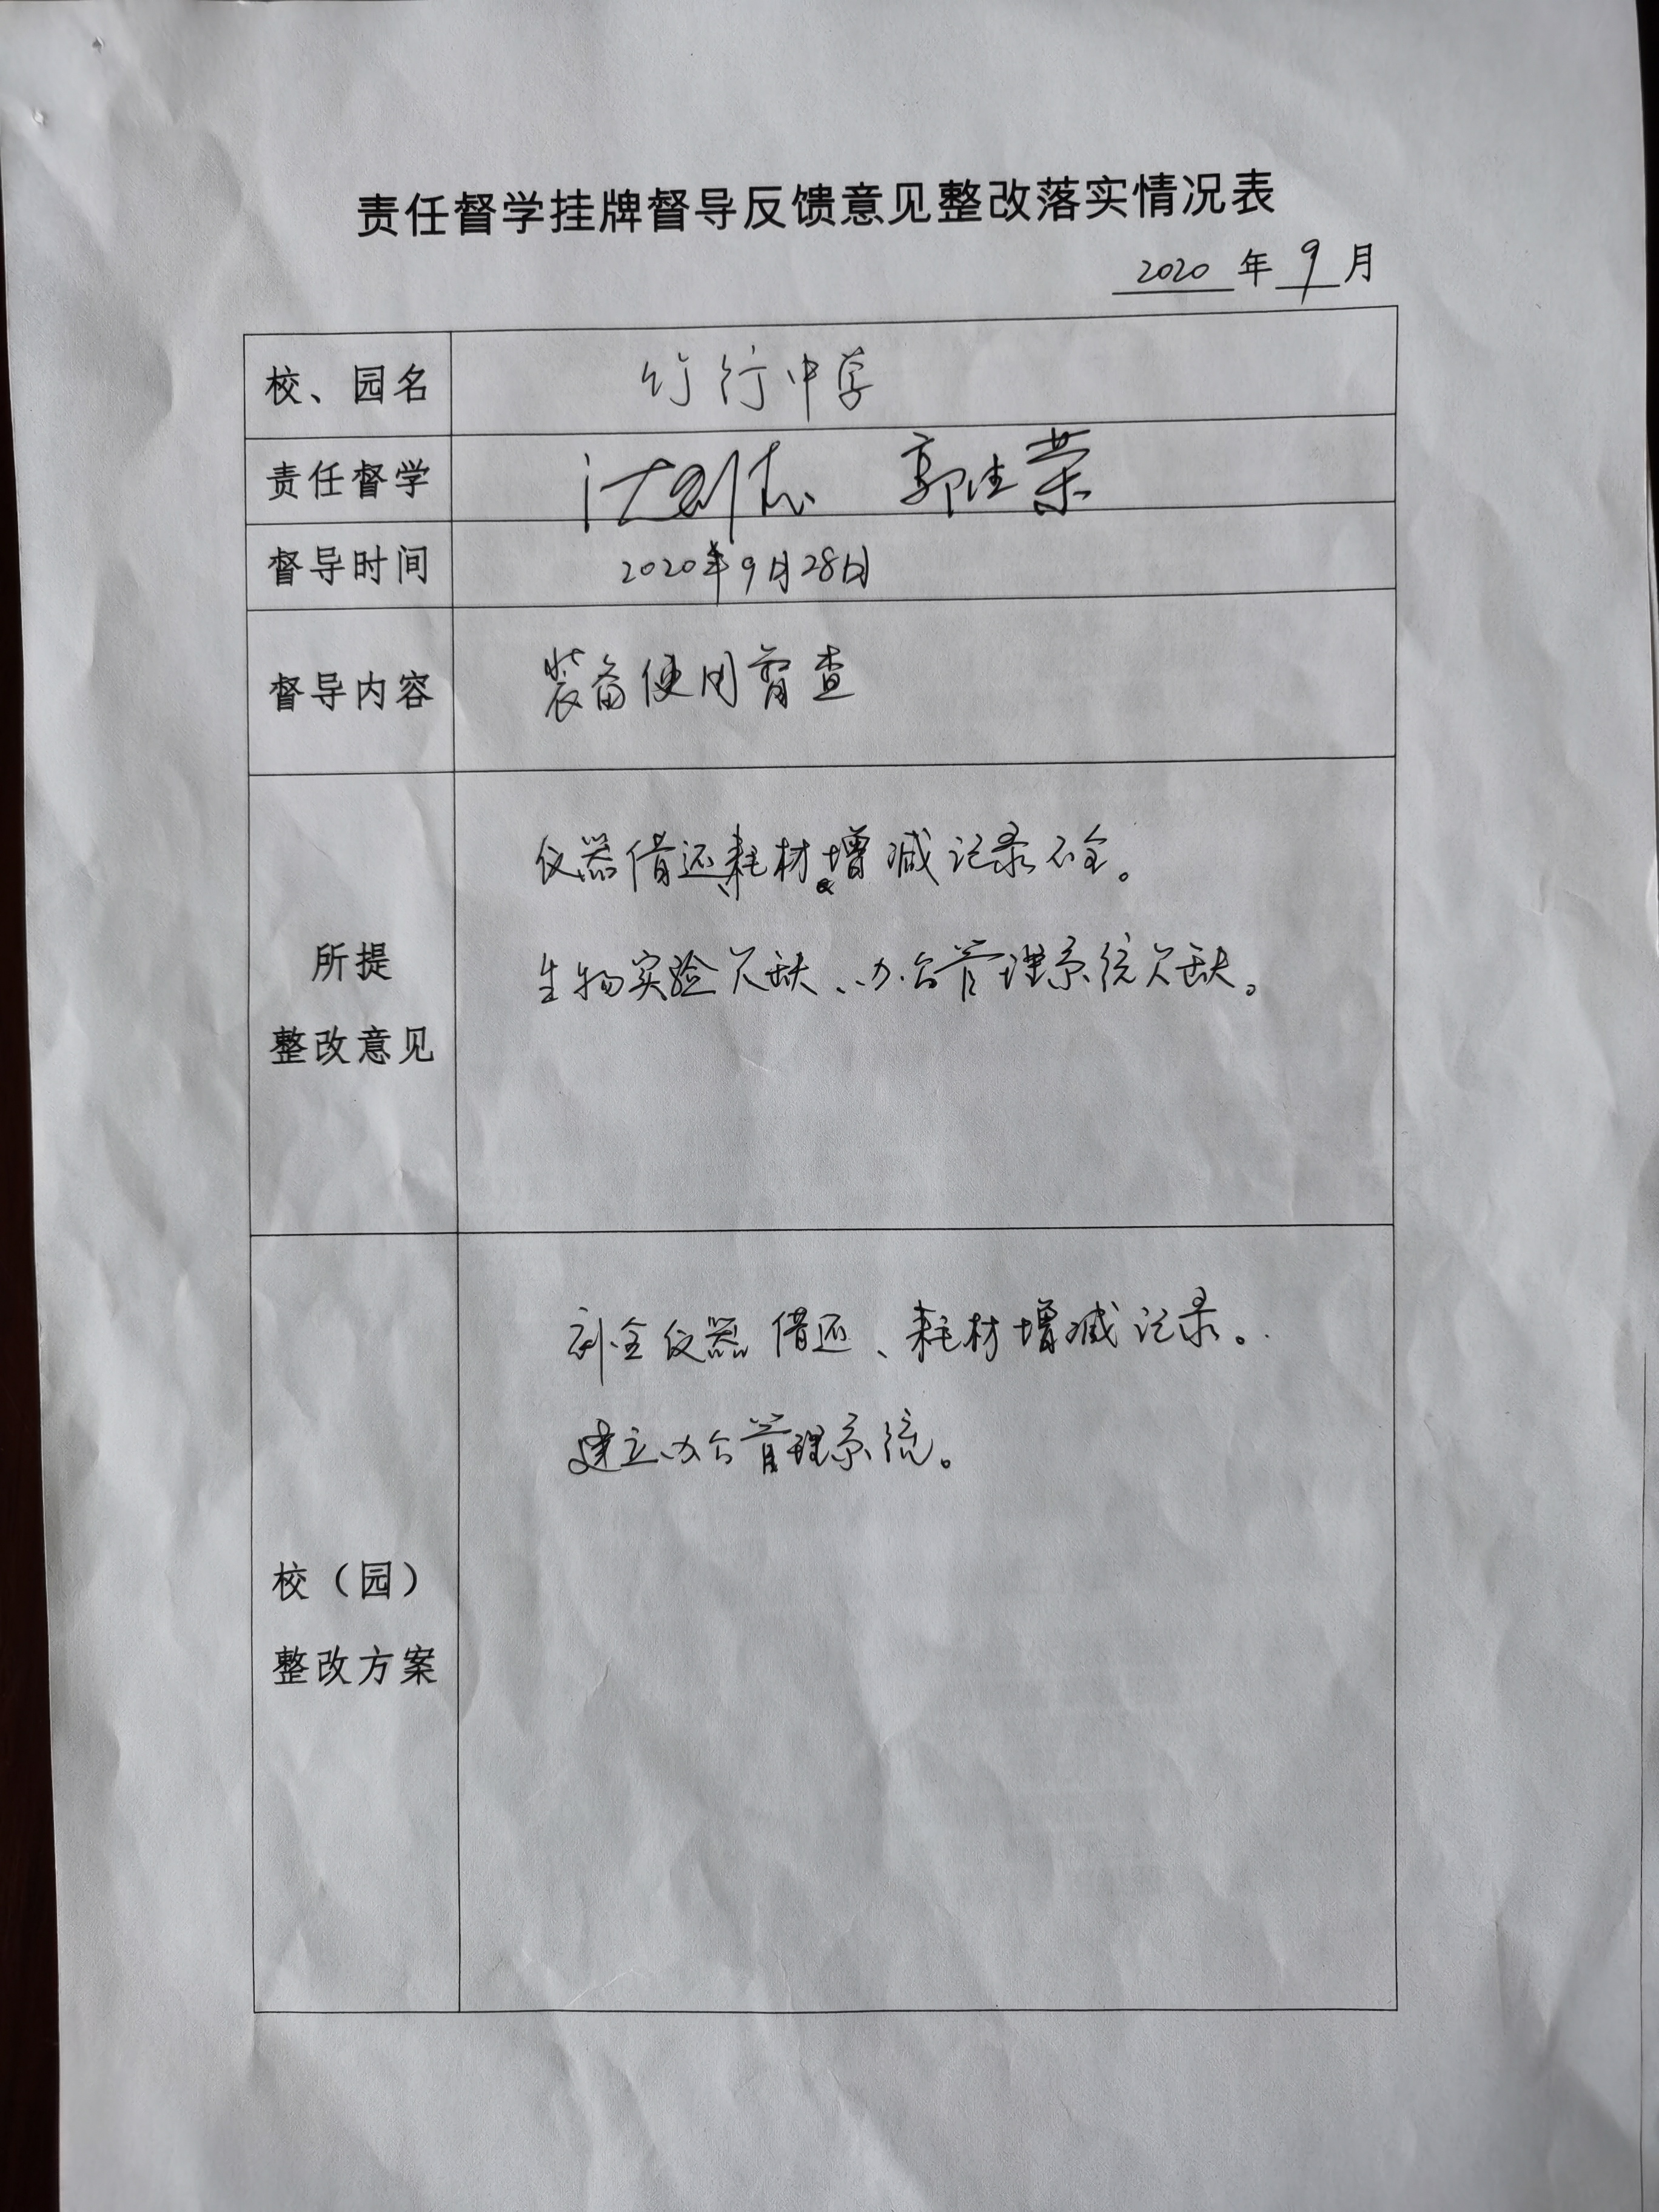 责任督学挂牌督导反馈意见整改落实情况表
2020 年 9 月
校、园名 竹行中学
责任督学 郭生荣
督导时间 2020年9月28日
督导内容 装备使用督查
所提
整改意见
仪器借还、耗材增减记录不全。
生物实验欠缺、办公管理系统欠缺。
校（园）
整改方案
补全仪器借还、耗材增减记录。
建立办公管理系统。